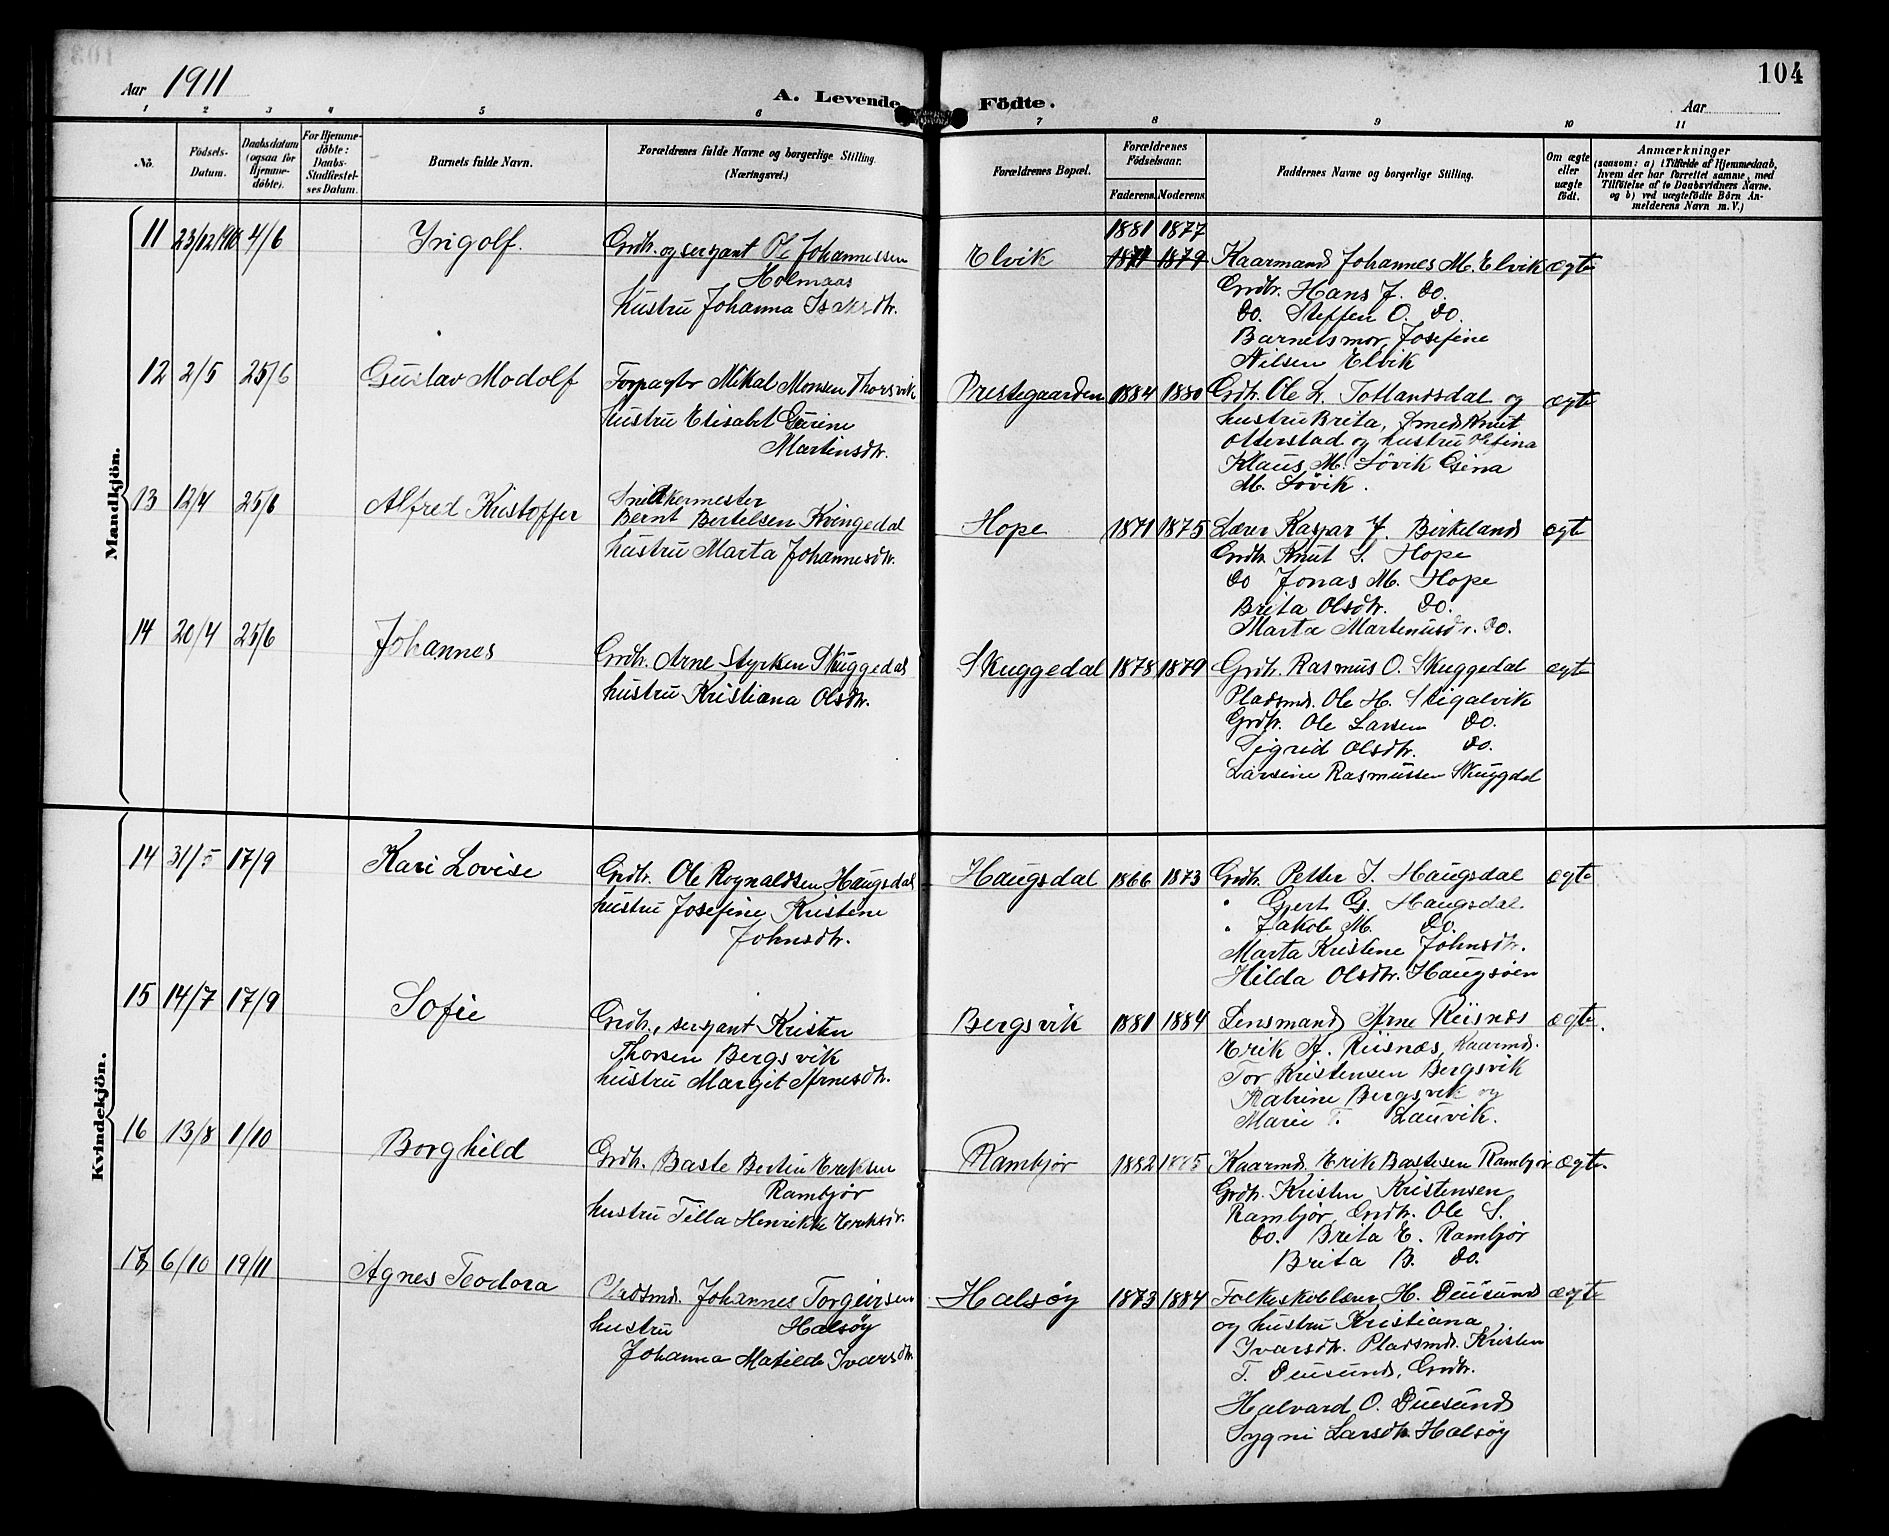 104
Aar 1911
A. Levende Födte.
Aar
1 2 3 4 5 6 7 8 9 10 11
No.
Födsels-Datum.
Daabsdatum (ogsaa for Hjemme-döbte).
For Hjemme-döbte: Daabs-Stadfæstel-ses Datum.
Barnets fulde Navn.
Forældrenes fulde Navne og borgerlige Stilling.
(Næringsvei.)
Forældrenes Bopæl.
Forældrenes Födselsaar.
Faderens. Moderens.
Faddernes Navne og borgerlige Stilling.
Om ægte eller uægte födt.
Anmærkninger
(saasom: a) i Tilfælde af Hjemmedaab,
hvem der har forrettet samme, med
Tilföielse af to Daabsvidners Navne.
og b) ved uægtefödte Börn An-
melderens Navn m. V.)
Mandkjön.
11 23/12 1910 4/6 Ingolf. Grdbr. og sergant Ole Johannessen
Holmaas
hustru Johanna Isaksdtr.
Elvik
1881 1877
1879
Kaarmand Johannes M. Elvik ægte
Grdbr. Hans J. do.
do. Steffen O. do.
Barnets mor, Josefine
Nilsen Elvik
12 2/5 25/6 Gustav Modolf Forpagter Mikal Monsen Thorsvik
hustru Elisabet Gurine
Martinsdtr.
Prestegaarden 1884 1880 Grdbr. Ole L. Totlandsdal og ægte
hustru Brita, smed Knut
Otterstad og hustru
Klaus M. Søvik Gsina
M. Søvik.
13 12/4 25/6 Alfred Kristoffer Snedkermester
Bernt Bertelsen Kvingedal
hustru Marta Johannesdtr.
Hope 1871 1875 Lærer Kaspar J. Birkeland ægte
Grdbr. Knut S. Hope
do Jonas M. Hope
Brita Olsdtr. do.
Marta Martinusdr. do.
14 20/4 25/6 Johannes Grdbr. Arne Styrksen Skuggedal
hustru Kristiana Olsdtr.
Skuggedal 1878 1879 Grdbr. Rasmus O. Skuggedal ægte
Pladsmd. Ole H. Stigalvik
Grdbr. Ole Larsen do.
Sigrid Olsdtr. do.
Larsine Rasmussen Skuggdal
Kvindekjön.
14 31/5 17/9 Kari Lovise Grdbr. Ole Rognaldsen Haugsdal
hustru Josefine Kristene
Johnsdtr.
Haugsdal 1866 1873 Grdbr. Petter I. Haugsdal ægte
" Gjert G. Haugsdal.
" Jakob M. do.
Marta Kristene Johnsdtr.
Hilda Olsdtr. Haugsøen
15 14/7 17/9 Sofie Grdbr., sergant Kristen
Thorsen Bergsvik
hustru Margit Arnesdtr.
Bergsvik 1881 1884 Lensmand Arne Riisnes ægte.
Erik A. Riisnæs, Kaarmd.
Tor Kristensen Bergsvik
Katrine Bergsvik og
Marie T. Lauvik.
16 13/8 1/10 Borghild Grdbr. Baste Bertin Eriksen
Rambjør
hustru Tilla Henrikke Eriksdr.
Rambjør 1882 Kaarmd. Erik Bastesen Rambjør ægte.
Grdbr. Kristen Kristensen
Rambjør, Grdbr. Ole S.
do. Brita E. Rambjør
Brita B. do.
17 6/10 19/11 Agnes Teodora Pladsmd. Johannes Torgeirsen
hustru Halsøy
Johanna Matilde Ivarsdtr.
Halsøy 1873 1884 Folkeskolelærer H. Duesund ægte
og hustru Kristiana
Ivarsdtr. Pladsmd. Kristen
T. Duesund, Grdbr.
Halvard O. Duesund
Sygni Larsdtr. Halsøy